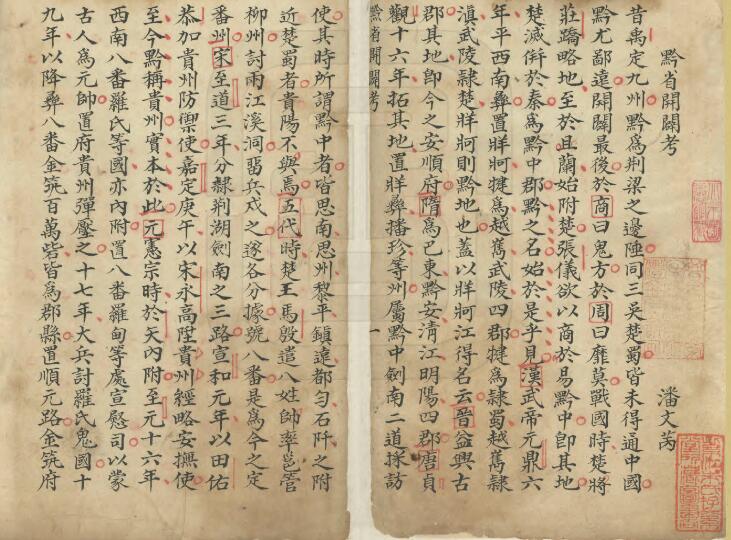 黔省開闢考
潘文芮
昔禹定九州黔為荆梁之邊陲同三吳楚蜀皆未得通中國
黔尤鄙遠開闢最後於商曰鬼方於周曰靡莫戰國時楚將
莊蹻略地至於且蘭始附楚張儀欲以商於易黔中卽其地
楚滅併於秦為黔中郡黔之名始於是乎見漢武帝元鼎六
年平西南彝置牂牁犍為越嶲武陵四郡犍為隷蜀越嶲隷
滇武陵隷楚牂牁則黔地也蓋以牂牁江得名云晉益興古
郡其地卽今之安順府隋為巴東黔安清江明陽四郡唐貞
觀十六年拓其地置牂彝播珍等州屬黔中劍南二道採訪
黔省開闢考
一
使其時所謂黔中者皆思南思州黎平鎮遠都勻石阡之附
近楚蜀者貴陽不與焉五代時楚王馬殷遣八姓帥率邕管
柳州討兩江溪洞畱兵戍之遂各分據號八番是為今之定
番州宋至道三年分隷荆湖劍南之三路宣和元年以田佑
恭加貴州防禦使嘉定庚午以宋永高陞貴州經略安撫使
至今黔稱貴州實本於此元憲宗時於矢內附至元十六年
西南八番羅氏等國亦內附置八番羅甸等處宣慰司以蒙
古人為元帥置府貴州彈壓之十七年大兵討羅氏鬼國十
九年以降彝八番金筑百萬砦皆為郡縣置順元路金筑府